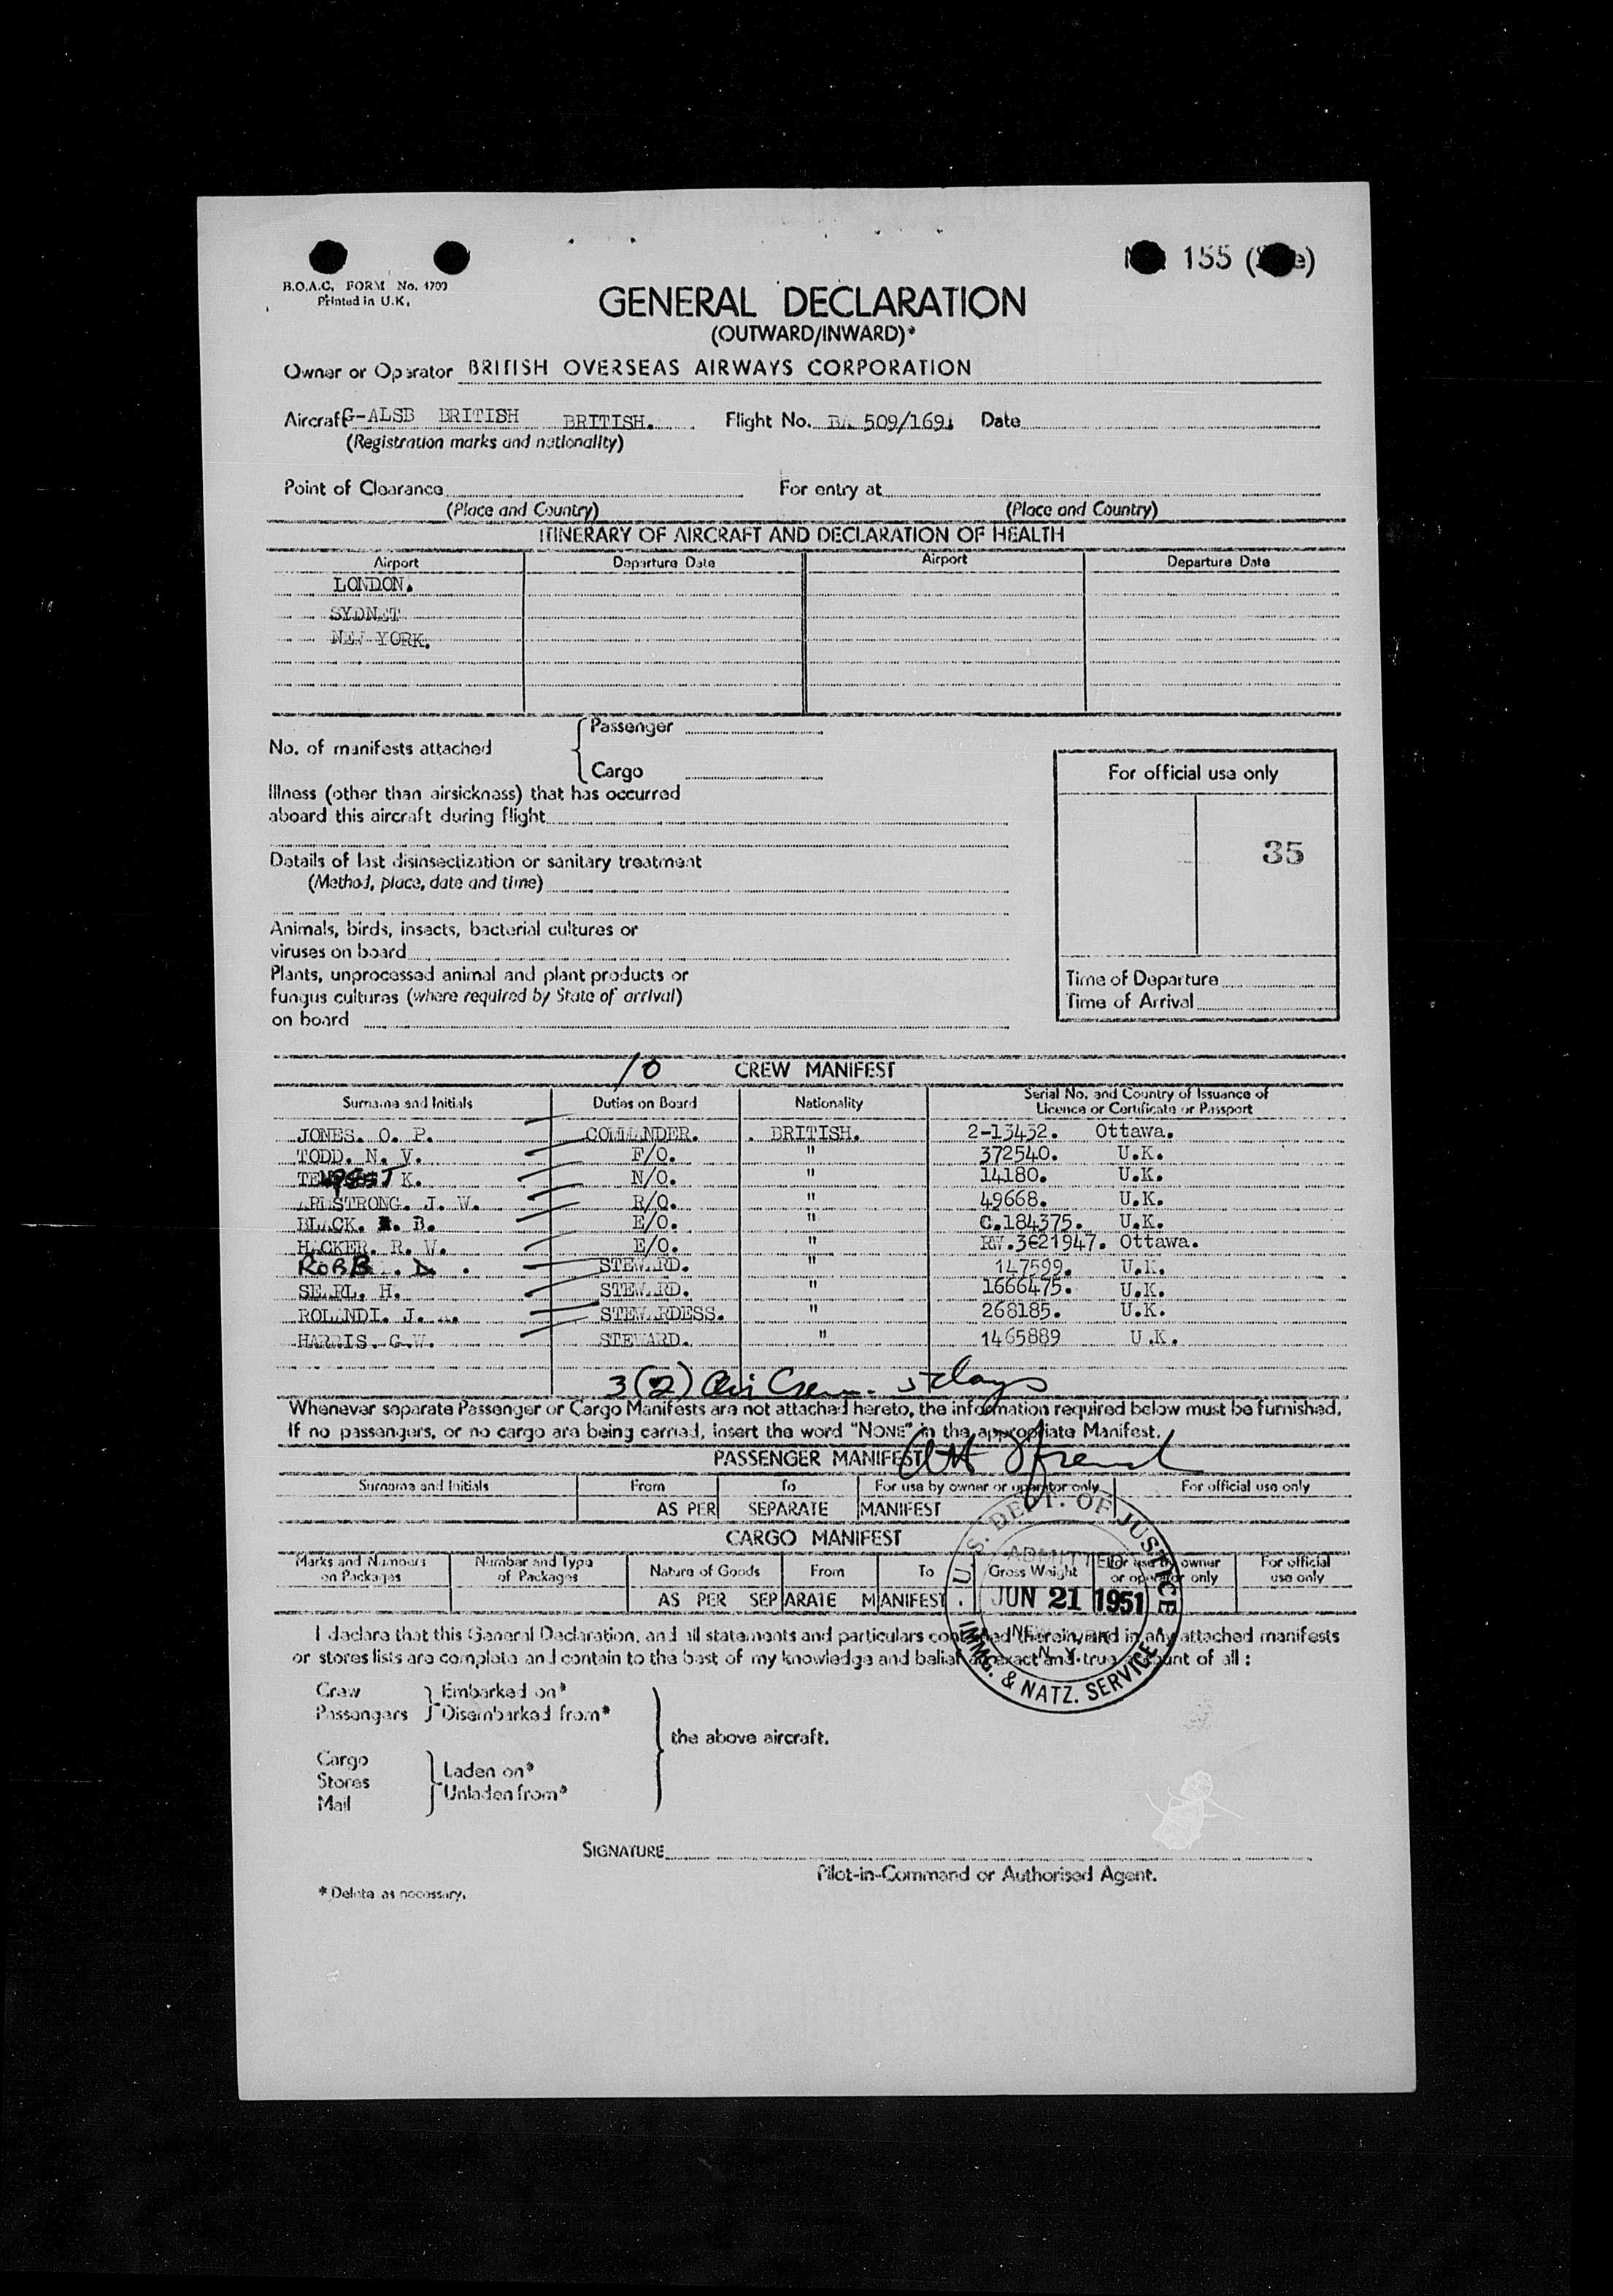 155
B.O.A.C. FORM No. 1700
Printed in U.K.
GENERAL DECLARATION
(OUTWARD/INWARD)*
Owner or Operator BRITISH OVERSEAS AIRWAYS CORPORATION
Aircraft G-ALSB BRITISH BRITISH. Flight No. BA 509/169 Date
(Registration marks and nationality)
Point of Clearance For entry at
(Place and Country) (Place and Country)
ITINERARY OF AIRCRAFT AND DECLARATION OF HEALTH
Airport Departure Date Airport Departure Date
LONDON.
SYDNET
NEW YORK.
No. of manifests attached { Passenger
Cargo
For official use only
Illness (other than airsickness) that has occurred
aboard this aircraft during flight
35
Details of last disinsectization or sanitary treatment
(Method, place, date and time)
Animals, birds, insects, bacterial cultures or
viruses on board
Plants, unprocessed animal and plant products or
fungus cultures (where required by State of arrival)
on board
Time of Departure
Time of Arrival
10 CREW MANIFEST
Surname and Initials Duties on Board Nationality Serial No. and Country of Issuance of
Licence or Certificate or Passport
JONES. O. P. COMMANDER. BRITISH. 2-13432. Ottawa.
TODD. N. V. F/O. " 372540. U.K.
K. N/O. " 14180. U.K.
ARMSTRONG. J. W. R/O. " 49668. U.K.
BLACK. B. E/O. " C.184375. U.K.
HACKER. R. V. E/O. " RW.3621947. Ottawa.
ROBB . D . STEWARD. " 147599. U.K.
SEARL. H. STEWARD. " 1666475. U.K.
ROLANDI. J. A. STEWARDESS. " 268185. U.K.
HARRIS. G.W. STEWARD. " 1465889 U.K.
3(2) Air Crew. 5 days
Whenever separate Passenger or Cargo Manifests are not attached hereto, the information required below must be furnished.
If no passengers, or no cargo are being carried, insert the word "NONE" in the appropriate Manifest.
PASSENGER MANIFEST
Surname and Initials From To For use by owner or operator only For official use only
AS PER SEPARATE MANIFEST
CARGO MANIFEST
Marks and Numbers on Packages Number and Type of Packages Nature of Goods From To Gross Weight For use by owner or operator only For official use only
AS PER SEPARATE MANIFEST.
U.S. DEPT. OF JUSTICE
ADMITTED
JUN 21 1951
NEW YORK
N.Y.
IMMG. & NATZ. SERVICE
I declare that this General Declaration, and all statements and particulars contained therein, and in any attached manifests
or stores lists are complete and contain to the best of my knowledge and belief an exact and true account of all :
Crew } Embarked on*
Passengers } Disembarked from*
the above aircraft.
Cargo
Stores } Laden on*
Mail } Unladen from*
SIGNATURE
Pilot-in-Command or Authorised Agent.
* Delete as necessary.